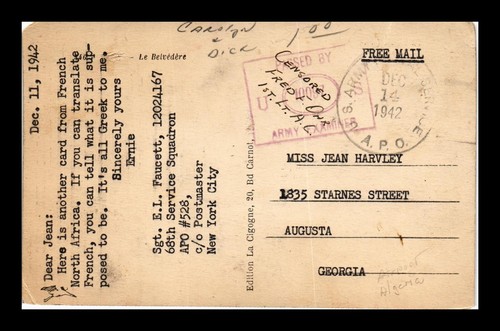 Carolyn
& Dick
1.00
Le Belvédère
Dec. 11, 1942
Dear Jean:
Here is another card from French
North Africa. If you can translate
French, you can tell what it is sup-
posed to be. It's all Greek to me.
Sincerely yours
Ernie
Sgt. E.L. Fauscett, 12024167
68th Service Squadron
APO #528,
c/o Postmaster
New York City
Edition La Cigogne, 20, Bd Carnot,
PASSED BY
U
ARMY EXAMINER
CENSORED
1ST. LT. A.C.
FREE MAIL
U.S. ARMY SERVICE
DEC
14
1942
A.P.O.
MISS JEAN HARVLEY
1335 STARNES STREET
AUGUSTA
GEORGIA
Algeria